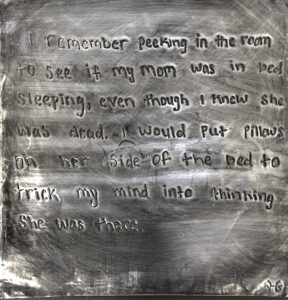 I remember peeking in the room
to see if my mom was in bed
sleeping, even though I knew she
was dead. I would put pillows
on her side of the bed to
trick my mind into thinking
she was there.